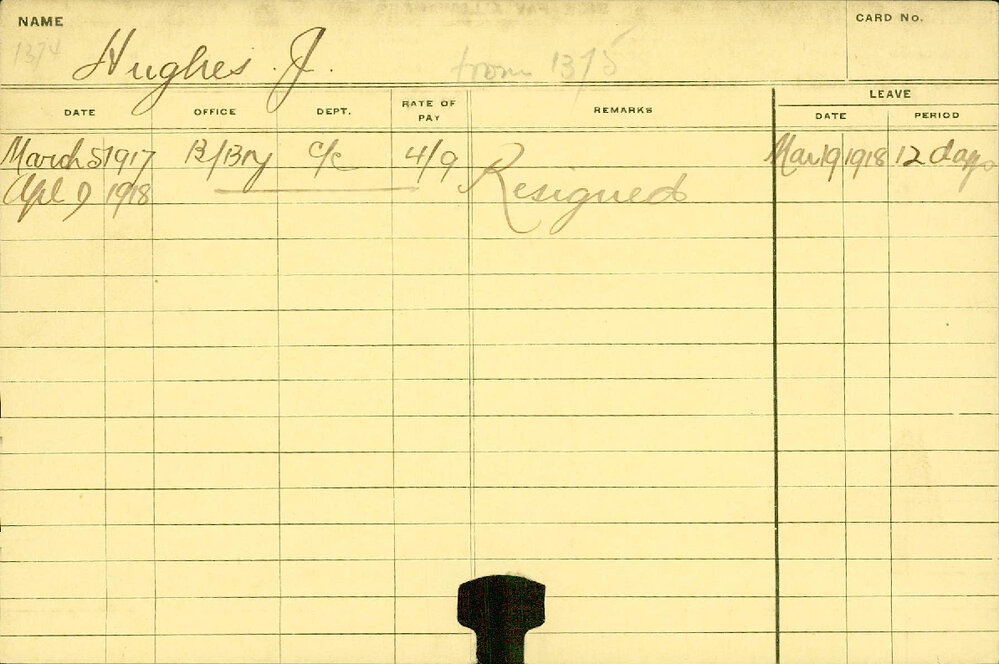 NAME
CARD No.
1374
Hughes. J.
from 1375
DATE OFFICE DEPT. RATE OF PAY REMARKS LEAVE DATE PERIOD
March 5 1917 B/Bry C/C 4/9 Mar 19 1918 12 days
Apl 9 1918 Resigned